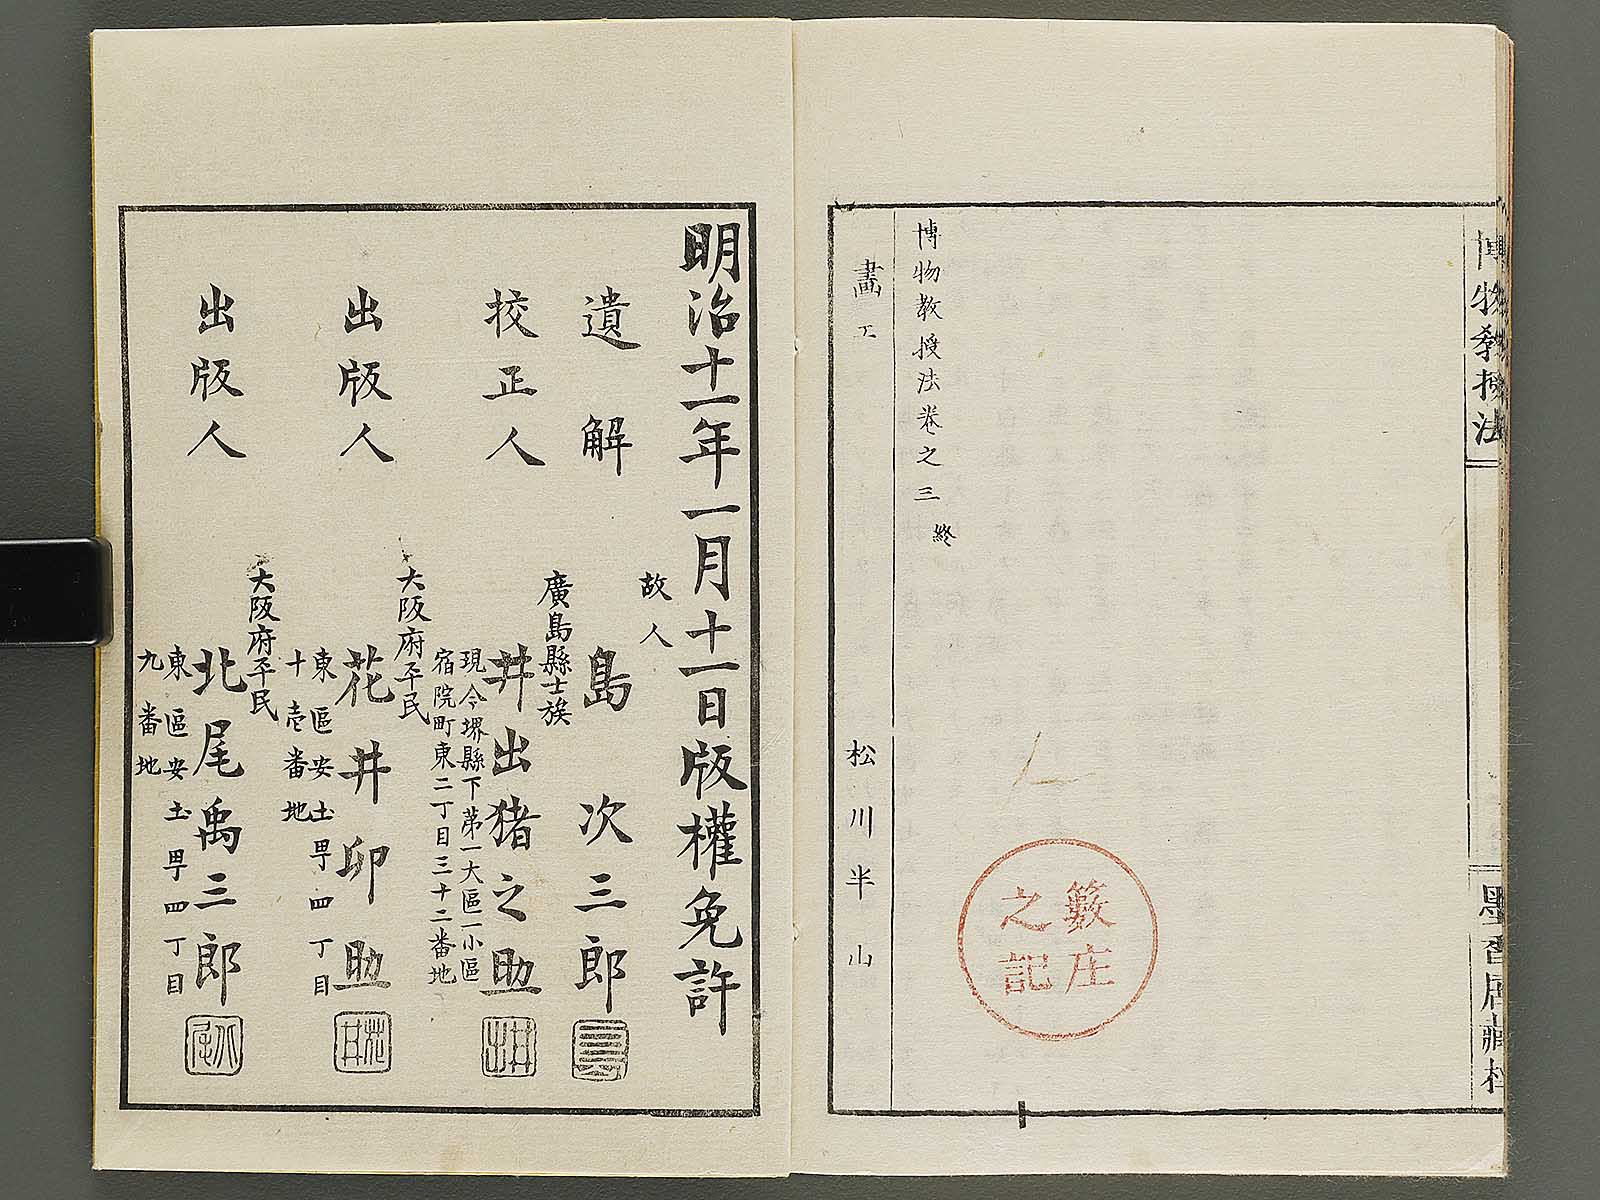 博物教授法
墨香居藏梓
博物教授法卷之三 終
畫工 松川半山
籔庄
之記
明治十一年一月十一日版權免許
故人
遺解 島次三郎
廣島縣士族
校正人 井出猪之助
現今堺縣下第一大區一小區
宿院町東二丁目三十二番地
大阪府平民
出版人 花井卯助
東區安土町四丁目
十壱番地
大阪府平民
出版人 北尾禹三郎
東區安土町四丁目
九番地
井出
花井
北尾